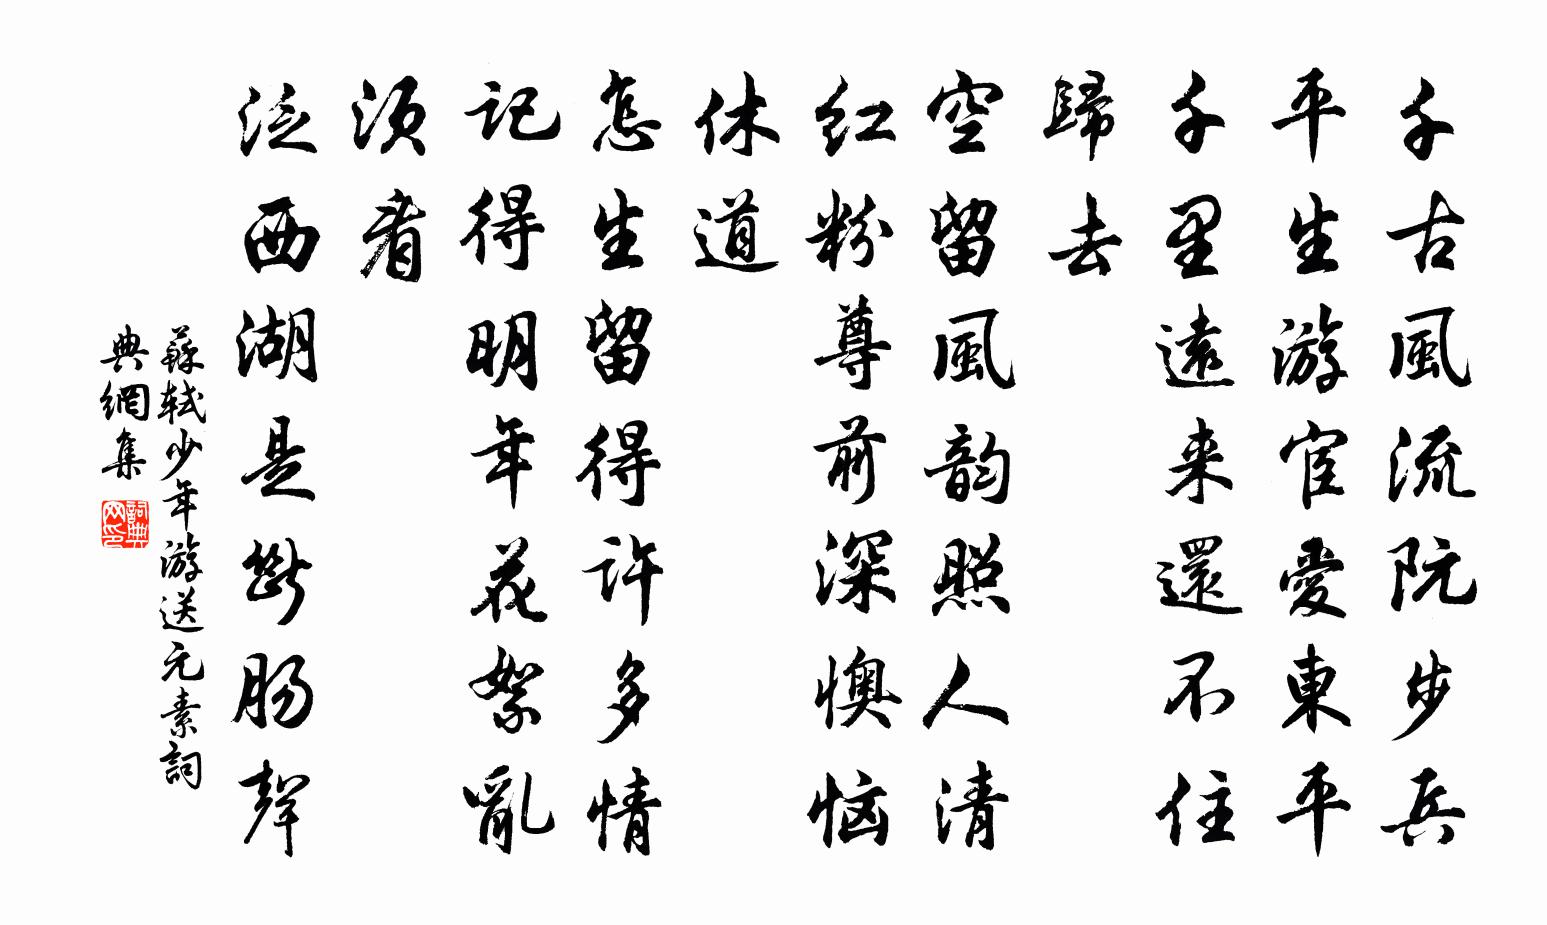 千古風流阮步兵
平生游宦愛東平
千里遠来還不住
歸去
空留風韵照人清
红粉尊前深懊恼
休道
怎生留得许多情
记得明年花絮亂
须看
泛西湖是斷肠聲
蘇轼少年游送元素詞
典網集
詞典网印